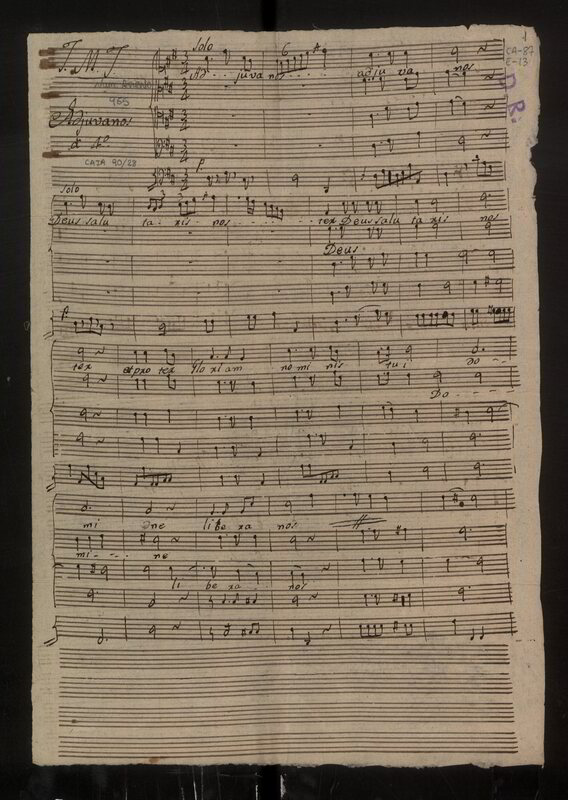 J. M. J.
solo
6
1
CA-87
E-13
Ad juva nos adju va nos
965
D. R.
Adjuvanos
a 4º
CAJA 90/28
p
solo
Deus salu ta ris nos ter Deus salu ta ris nos
Deus
p
ter et pro ter glo riam no mi nis tu i Do
Do
mi ne libe ra nos
mi ne
li be ra nos